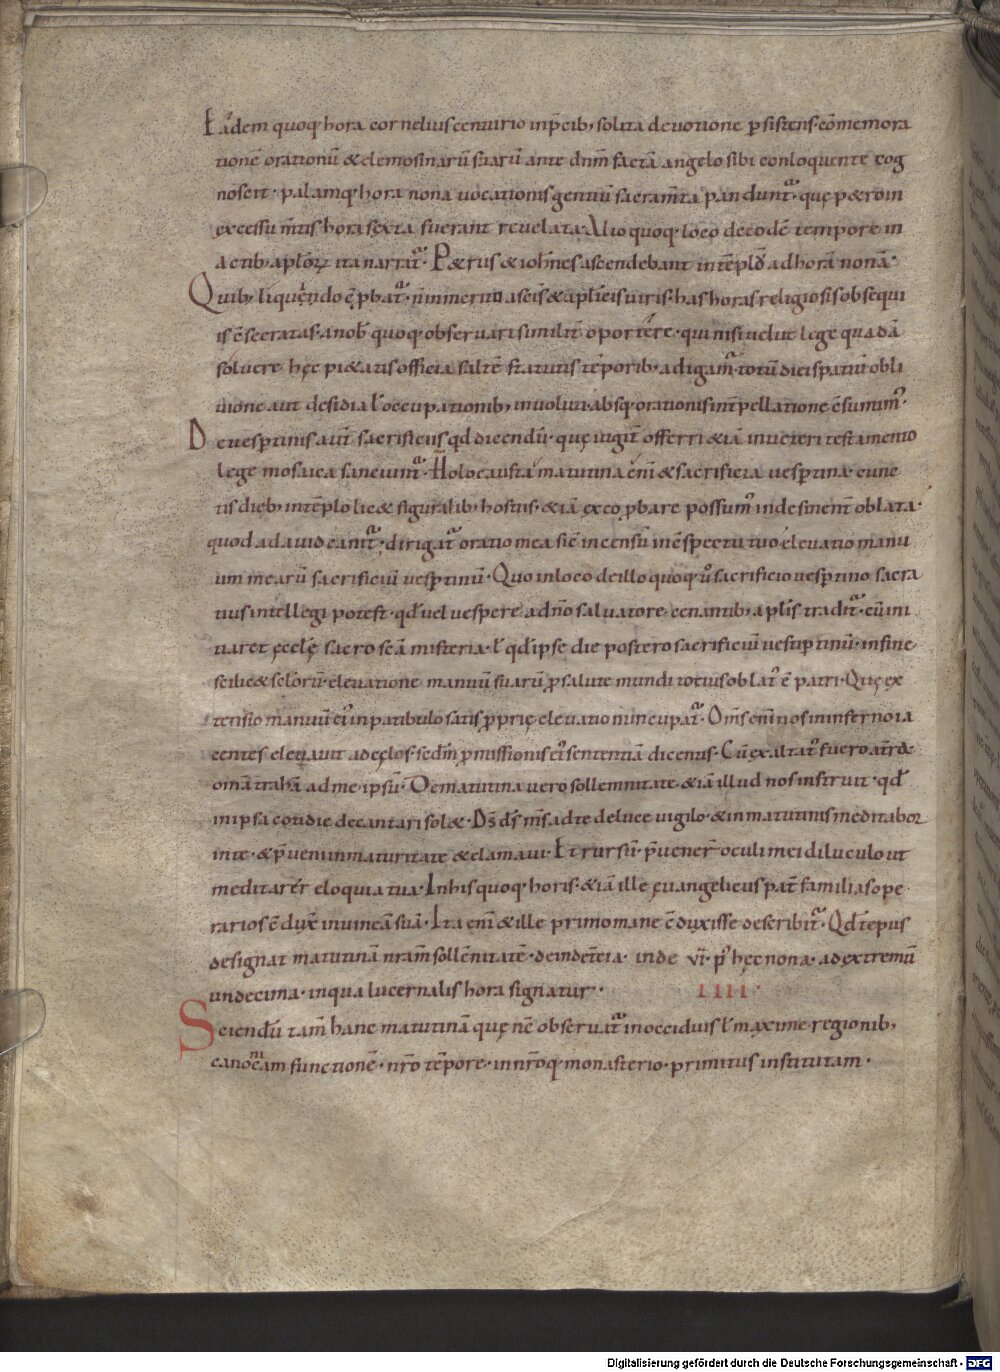 Eadem quoq; hora cornelius centurio inp̄cib; solita deuotione ꝑsistens. cōmemora
tionē orationū & elemosinarū suarū ante dn̄m factā angelo sibi conloquente cog
noscit. palamq; hora nona uocationis gentiū sacram̄ta pandunt᷑. quę p&ro in
excessu m̄tis hora sexta fuerant reuelata. Alio quoq; loco de eodē tempore in
actib; apl̄oꝝ ita narrat᷑. P&rus & ioh̄nes ascendebant in tēplū ad horā nonā.
Quib; liquendo ē ꝓbat᷑. n̄ inmerito a sc̄is & apl̄icis uiris. has horas religiosis obsequi
is c̄secratas. a nob̄ quoq; obseruari similit̄ oportere. qui nisi uelut lege quadā
soluere hęc pi&atis officia saltē statutis tēporib; adigam᷑. totū diei spatiū obli
uione aut desidia ł occupationib; inuoluti. absq; orationis int̄pellatione c̄sumim᷒.
De uesꝑtinis aut̄ sacrificiis qd̄ dicendū. quę iugit̄ offerri &iā in ueteri testamento
lege mosaica sanciunt᷑. Holocausta matutina en̄i & sacrificia uesꝑtina. cunc
tis dieb; in tēplo lic& figuralib; hostiis. &iā ex eo ꝓbare possum᷒ indesinent̄ oblata.
quod a dauid canit᷑. dirigat᷑ oratio mea sic̄ incensū in c̄spectu tuo eleuatio manu
um mearū sacrificiū uesꝑtinū. Quo in loco de illo quoq; ū sacrificio uesꝑtino sacra
tius intellegi potest. qd̄ uel uespere a dn̄o saluatore cenantib; apl̄is tradit᷑. cū ini
tiaret ęcclę̄ sacrosc̄a misteria. ł qd̄ ipse die postero sacrificiū uesꝑtinū. in fine
scilic& sclorū. eleuatione manuū suarū ꝓ salute mundi totius oblat᷒ ē patri. Quę ex
tensio manuū ei᷒ in patibulo satis ꝓprię eleuatio nuncupat᷑. Om̄s en̄i nos in inferno ia
centes eleuauit ad cęlos. sedm̄ ꝓmissionis ei᷒ sententiā dicentis. Cū exaltat᷒ fuero a t̄ra
omīa trahā ad me ipsū. De matutina uero sollemnitate &iā illud nos instruit. qd̄
in ipsa cotidie decantari sol&. Ds̄ ds̄ m̄s ad te de luce uigilo. & in matutinis meditabor
in te. & p̄ueni in maturitate & clamaui. Et rursū. p̄uener̄ oculi mei diluculo ut
meditarer eloquia tua. In his quoq; horis. &iā ille ęuangelicus pat̄ familias ope
rarios c̄duxit in uineā suā. Ita en̄i & ille primo mane c̄duxisse describit᷑. Qd̄ tēpus
designat matutinā nr̄am sollēnitatē. deinde t̄cia. inde vī. p᷒ hęc nona. ad extremū
undecima. in qua lucernalis hora signatur. IIII.
Sciendū tam̄ hanc matutinā quę nc̄ obseruat᷑ in occiduis ł maxime regionib;
canonicam functionē. nr̄o tēpore. in nr̄oq; monasterio. primitus institutam.
Digitalisierung gefördert durch die Deutsche Forschungsgemeinschaft - DFG